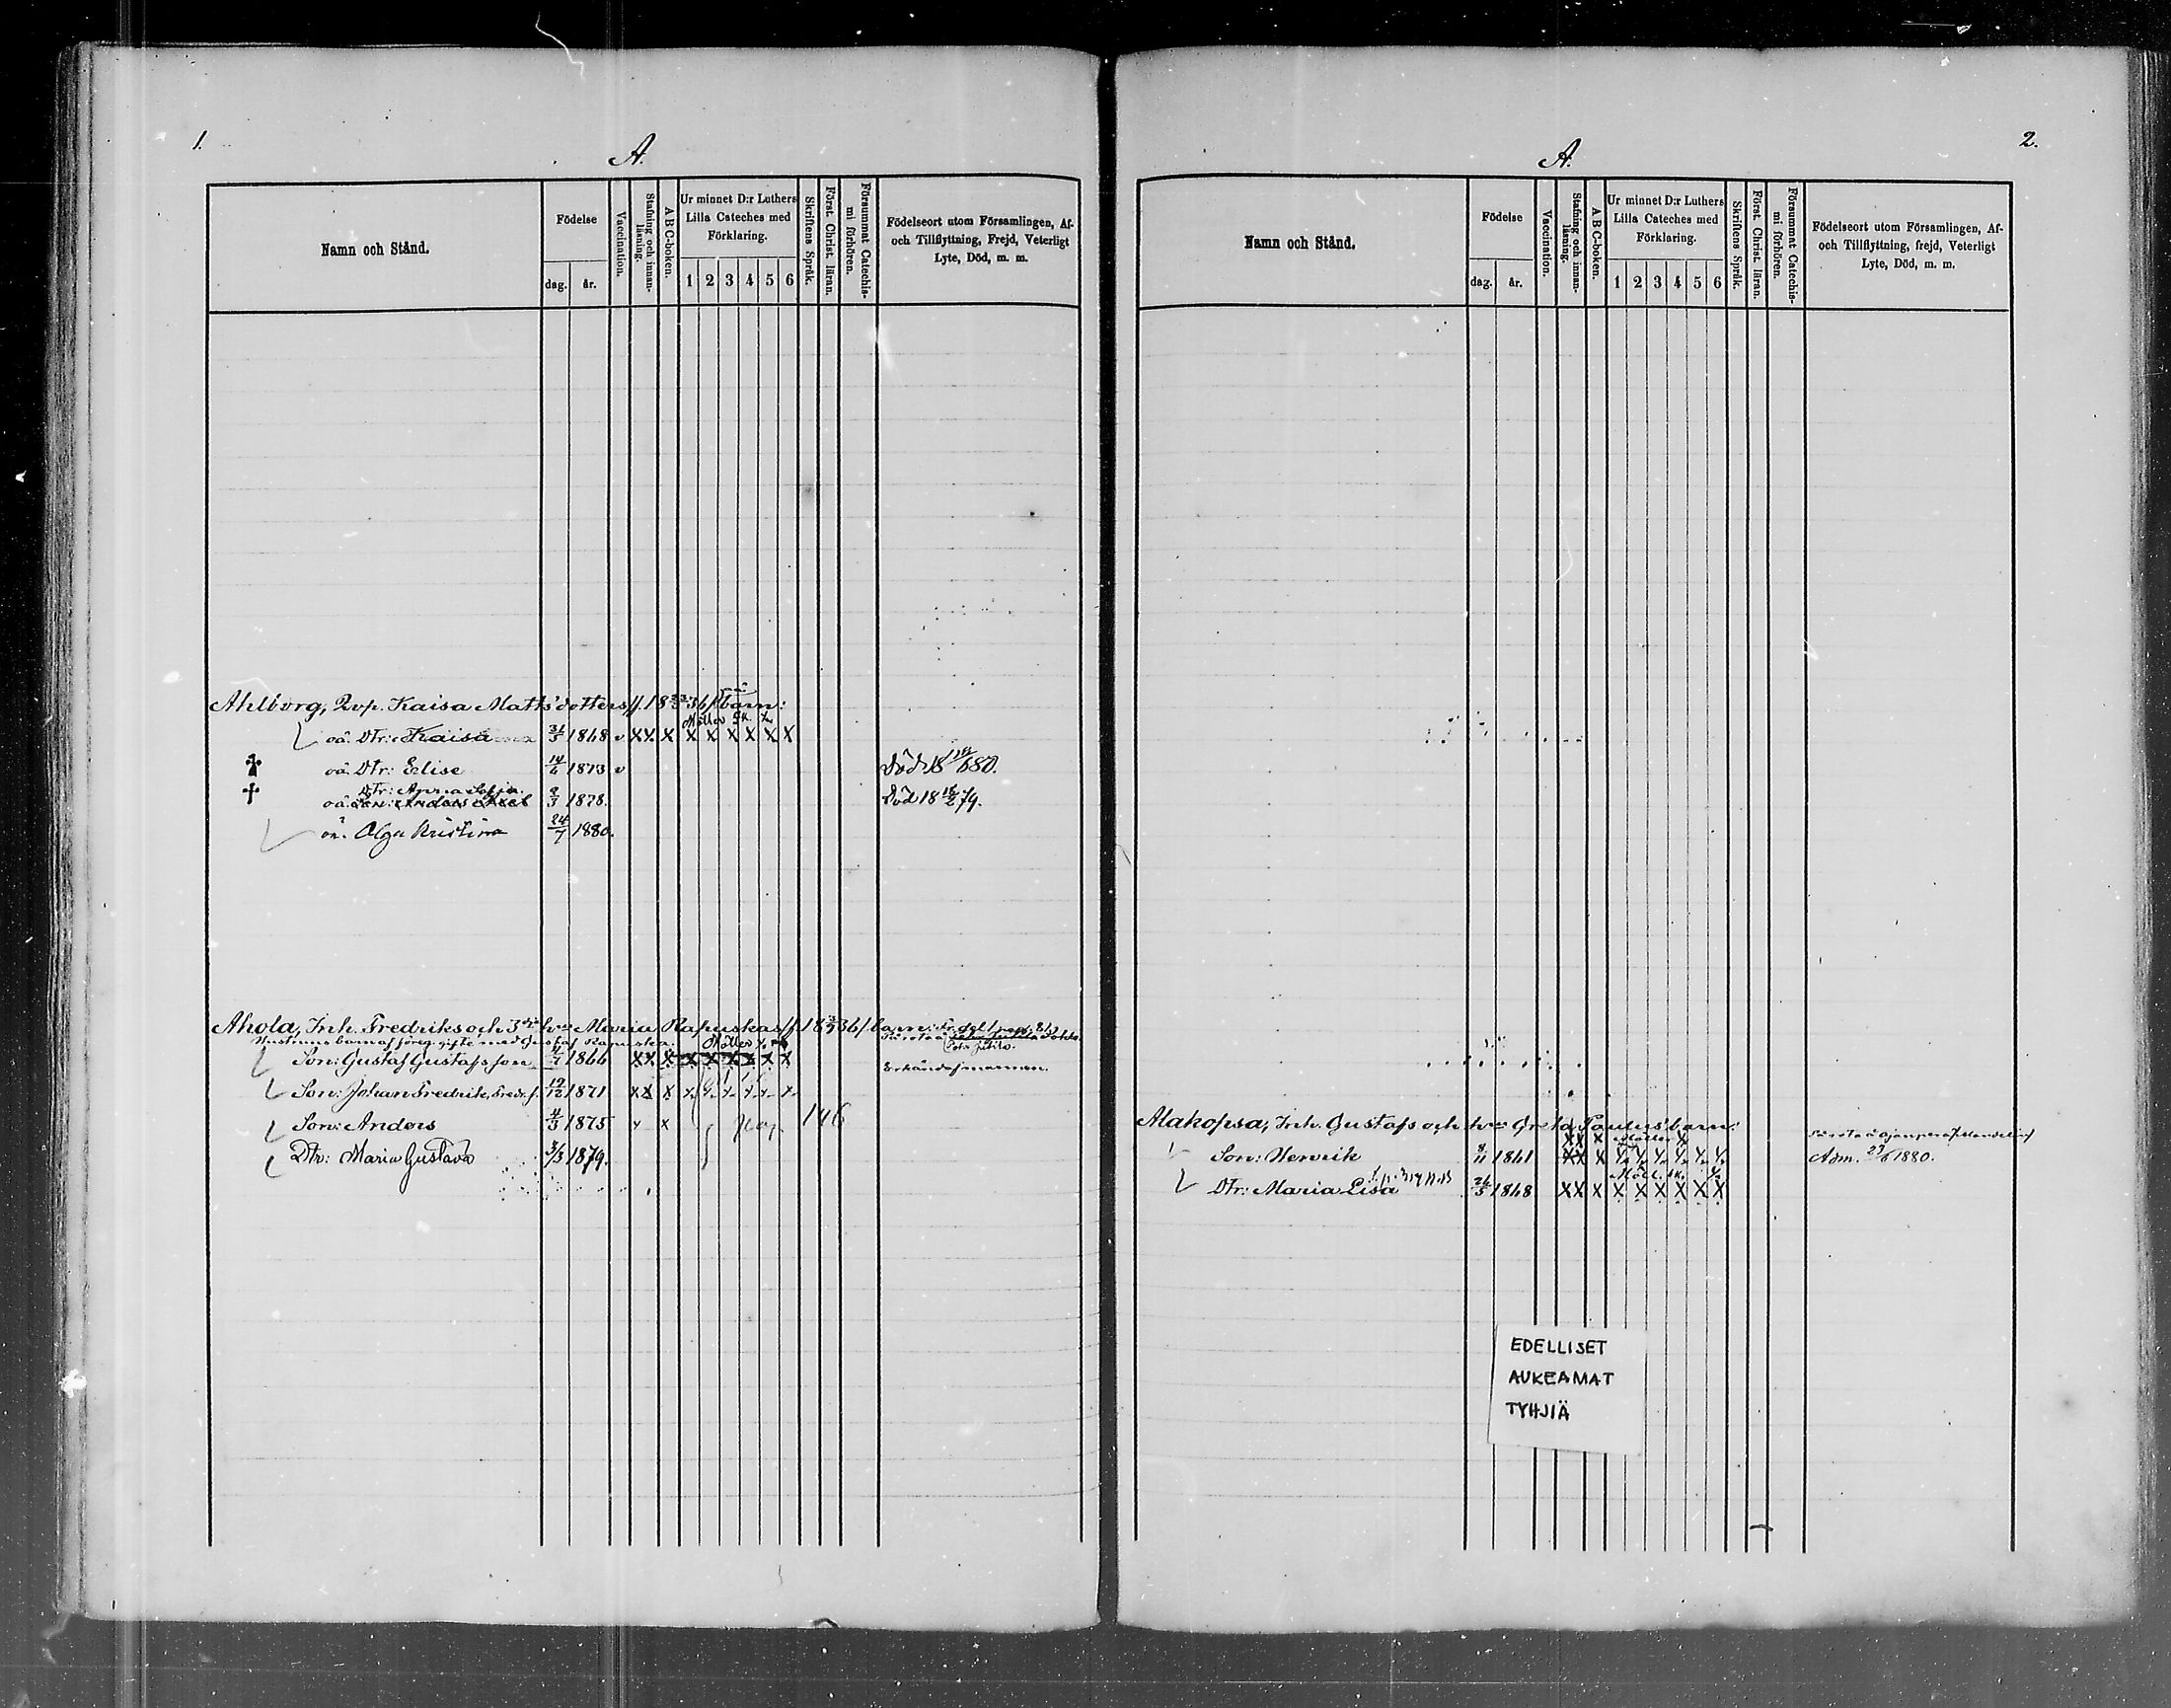 1.
A.
Namn och Stånd.
Födelse
dag.
år.
Vaccination.
Stafning och innan-
läsning.
A B C-boken.
Ur minnet D:r Luthers
Lilla Cateches med
Förklaring.
1 2 3 4 5 6
Skriftens Språk.
Först. Christ. läran.
Försummat Catechis-
mi förhören.
Födelseort utom Församlingen, Af-
och Tillflyttning, Frejd, Veterligt
Lyte, Död, m. m.
Ahlborg, Kaisa Matts dotters barn:
oä. Dtr: Kaisa 31/5 1868 v X X X X X X X X X
oä. Dtr: Elise 14/6 1873 v Död
Dtr: Anna Sofia
oä. Son: Anders Axel 9/3 1878. Död 18 79.
oä. Olga Kristina 24/7 1880.
Ahola, Inh. Fredriks och 3dje h:us Maria Rapuskas barn:
Hustruns barn af föreg. gifte med Gustaf Rapuska.
Son: Gustaf Gustafsson 1866 X X X X X X X X X
Son: Johan Fredrik, Fredr. s. 19/12 1871 X X X
Son: Anders 4/3 1875 x x 146
Dtr: Maria Gustava 3/3 1879.
2.
A.
Namn och Stånd.
Födelse
dag.
år.
Vaccination.
Stafning och innan-
läsning.
A B C-boken.
Ur minnet D:r Luthers
Lilla Cateches med
Förklaring.
1 2 3 4 5 6
Skriftens Språk.
Först. Christ. läran.
Försummat Catechis-
mi förhören.
Födelseort utom Församlingen, Af-
och Tillflyttning, frejd, Veterligt
Lyte, Död, m. m.
Alakopsa, Inh. Gustafs och h:us Greta Paulus barn:
Son: Henrik 8/11 1861 X X X Adm. 1880.
Dtr: Maria Lisa 26/5 1868 X X X X X X X X X
EDELLISET
AUKEAMAT
TYHJIÄ